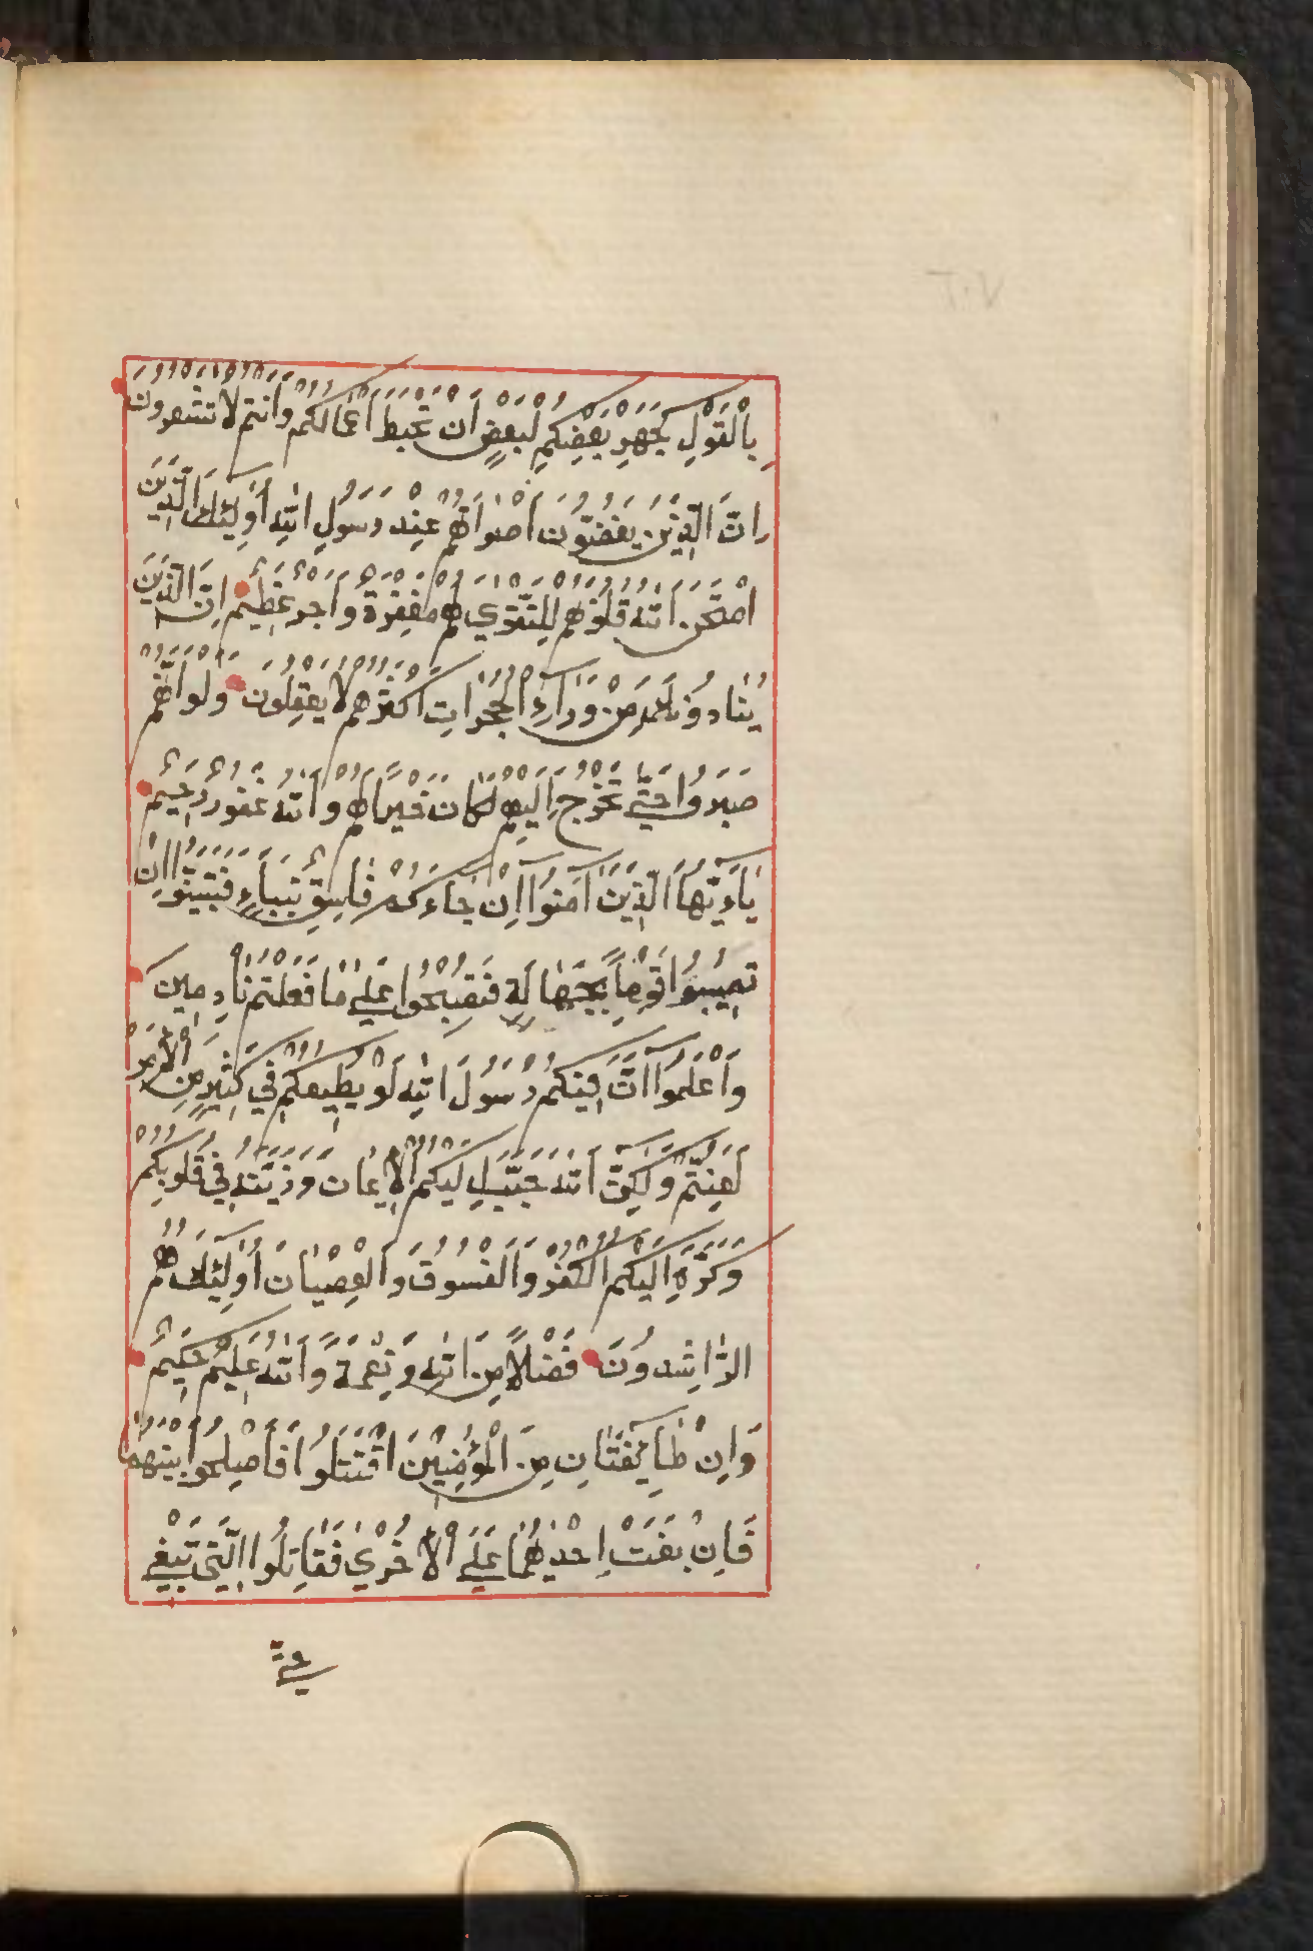 بِالْقَوْلِ كَجَهْرِ بَعْضِكُمْ لِبَعْضٍ أَنْ تَحْبَطَ أَعْمَالُكُمْ وَأَنْتُمْ لَا تَشْعُرُونَ
إِنَّ الَّذِينَ يَغُضُّونَ أَصْوَاتَهُمْ عِنْدَ رَسُولِ اللهِ أُولَئِكَ الَّذِينَ
امْتَحَنَ اللهُ قُلُوبَهُمْ لِلتَّقْوَى لَهُمْ مَغْفِرَةٌ وَأَجْرٌ عَظِيمٌ إِنَّ الَّذِينَ
يُنَادُونَكَ مِنْ وَرَاءِ الْحُجُرَاتِ أَكْثَرُهُمْ لَا يَعْقِلُونَ وَلَوْ أَنَّهُمْ
صَبَرُوا حَتَّى تَخْرُجَ إِلَيْهِمْ لَكَانَ خَيْرًا لَهُمْ وَاللهُ غَفُورٌ رَحِيمٌ
يَاأَيُّهَا الَّذِينَ آمَنُوا إِنْ جَاءَكُمْ فَاسِقٌ بِنَبَاءٍ فَتَبَيَّنُوا أَنْ
تُصِيبُوا قَوْمًا بِجَهَالَةٍ فَتُصْبِحُوا عَلَى مَا فَعَلْتُمْ نَادِمِينَ
وَاعْلَمُوا أَنَّ فِيكُمْ رَسُولَ اللهِ لَوْ يُطِيعُكُمْ فِي كَثِيرٍ مِنَ الْأَمْرِ
لَعَنِتُّمْ وَلَكِنَّ اللهَ حَبَّبَ إِلَيْكُمُ الْإِيمَانَ وَزَيَّنَهُ فِي قُلُوبِكُمْ
وَكَرَّهَ إِلَيْكُمُ الْكُفْرَ وَالْفُسُوقَ وَالْعِصْيَانَ أُولَئِكَ هُمُ
الرَّاشِدُونَ فَضْلًا مِنَ اللهِ وَنِعْمَةً وَاللهُ عَلِيمٌ حَكِيمٌ
وَإِنْ طَائِفَتَانِ مِنَ الْمُؤْمِنِينَ اقْتَتَلُوا فَأَصْلِحُوا بَيْنَهُمَا
فَإِنْ بَغَتْ إِحْدَيهُمَا عَلَى الْأُخْرَى فَقَاتِلُوا الَّتِي تَبْغِي